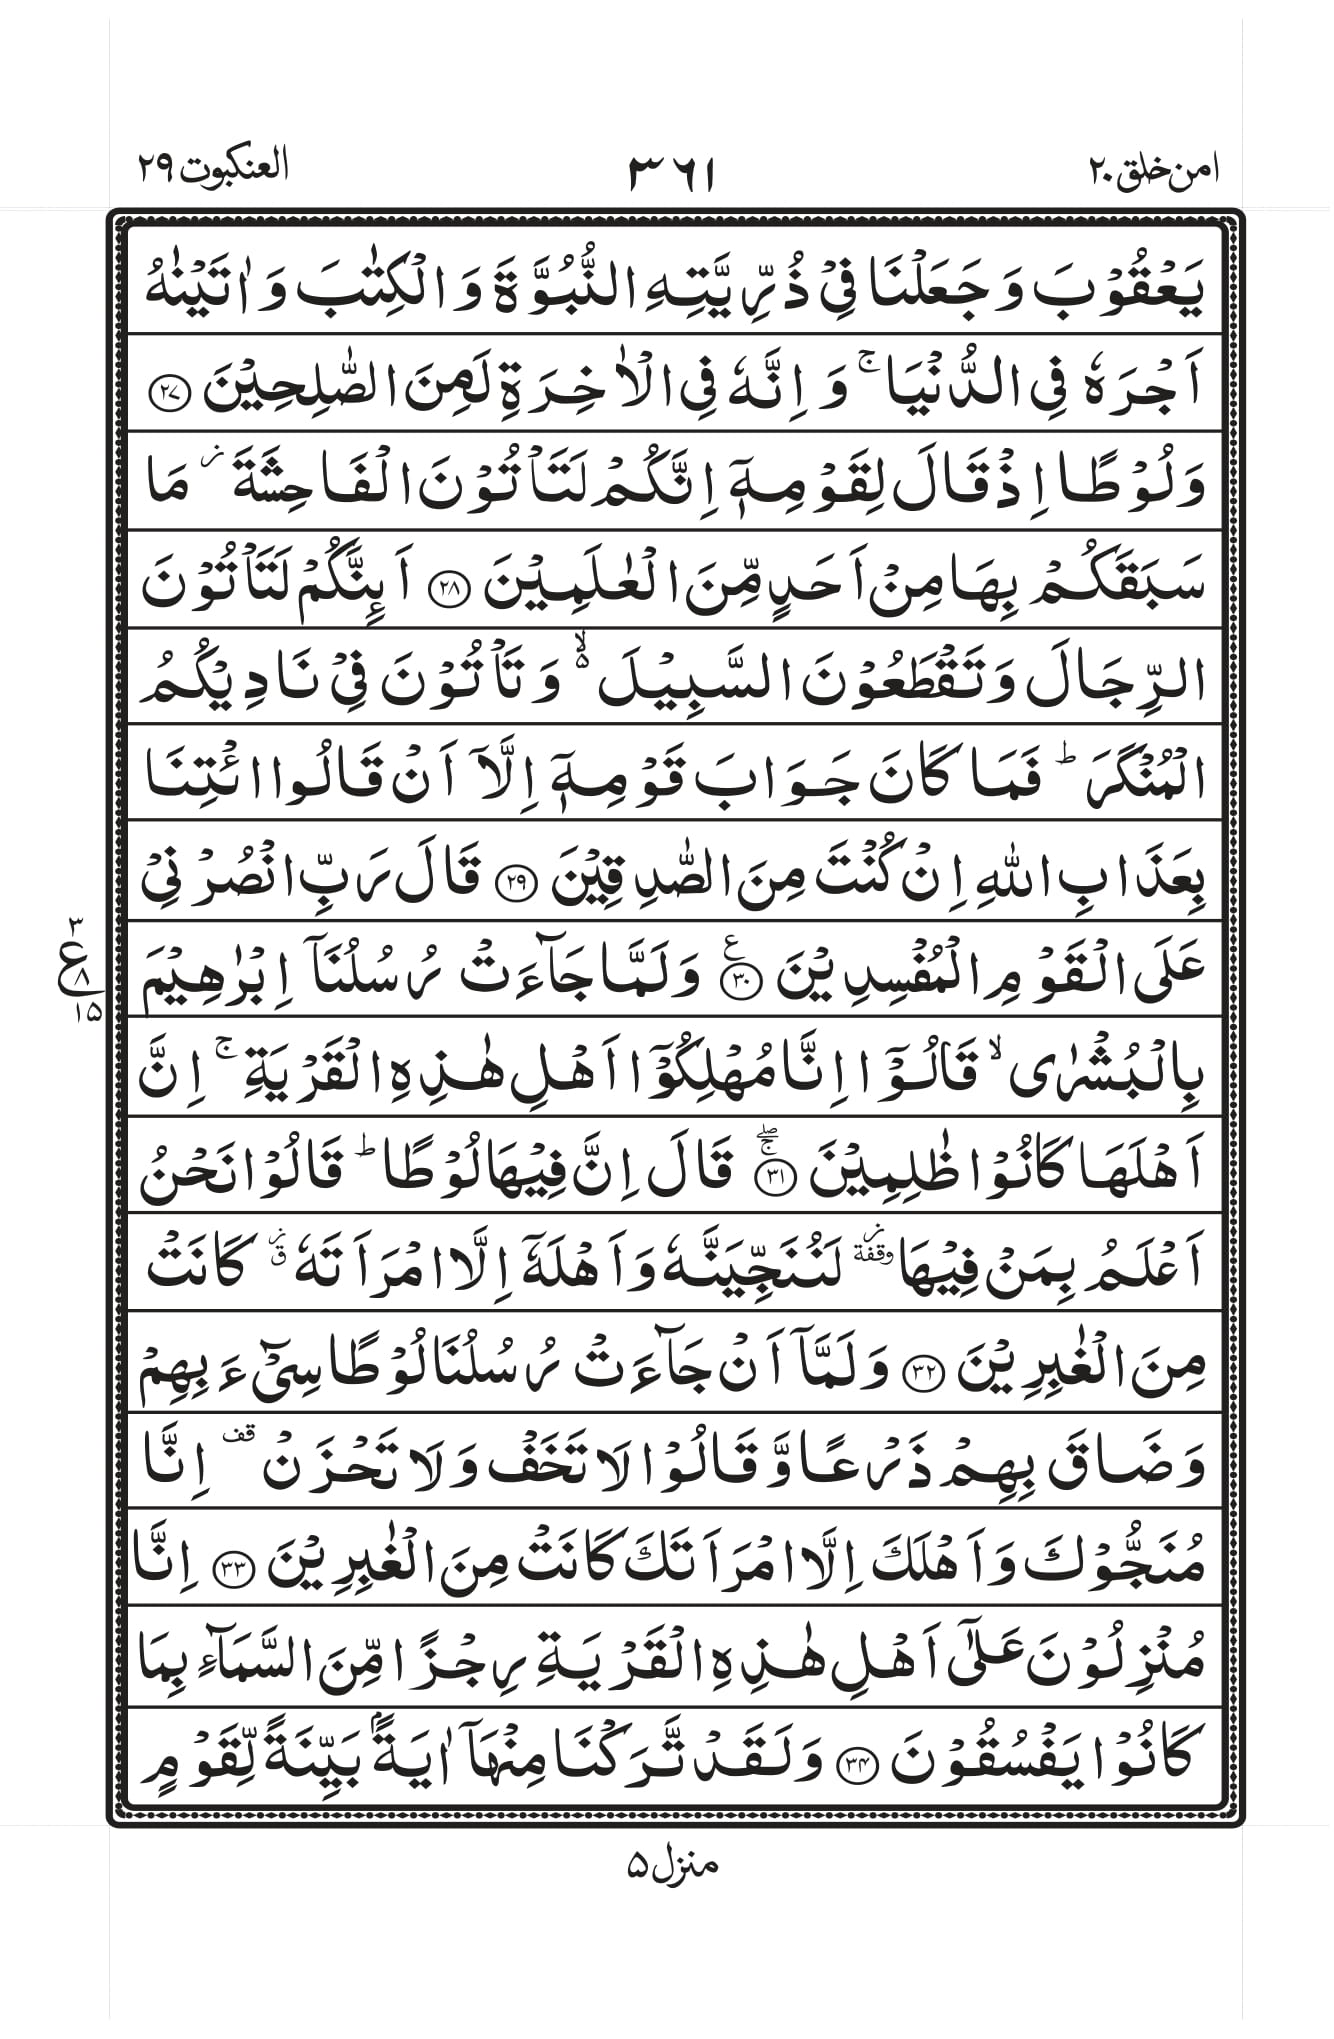 امن خلق ٢٠
٣٦١
العنكبوت ٢٩
يَعْقُوْبَ وَ جَعَلْنَا فِيْ ذُرِّيَّتِهِ النُّبُوَّةَ وَ الْكِتٰبَ وَ اٰتَيْنٰهُ
اَجْرَهٗ فِي الدُّنْيَا ۚ وَ اِنَّهٗ فِي الْاٰخِرَةِ لَمِنَ الصّٰلِحِيْنَ ﴿٢٧﴾
وَ لُوْطًا اِذْ قَالَ لِقَوْمِهٖۤ اِنَّكُمْ لَتَاْتُوْنَ الْفَاحِشَةَ ز مَا
سَبَقَكُمْ بِهَا مِنْ اَحَدٍ مِّنَ الْعٰلَمِيْنَ ﴿٢٨﴾ اَىِٕنَّكُمْ لَتَاْتُوْنَ
الرِّجَالَ وَ تَقْطَعُوْنَ السَّبِيْلَ ۙ۬ وَ تَاْتُوْنَ فِيْ نَادِيْكُمُ
الْمُنْكَرَ ؕ فَمَا كَانَ جَوَابَ قَوْمِهٖۤ اِلَّاۤ اَنْ قَالُوا ائْتِنَا
بِعَذَابِ اللّٰهِ اِنْ كُنْتَ مِنَ الصّٰدِقِيْنَ ﴿٢٩﴾ قَالَ رَبِّ انْصُرْنِيْ
عَلَى الْقَوْمِ الْمُفْسِدِيْنَ ﴿٣٠﴾ ع وَ لَمَّا جَآءَتْ رُسُلُنَاۤ اِبْرٰهِيْمَ
٣
ع
٨
١٥
بِالْبُشْرٰى ۙ قَالُوْۤا اِنَّا مُهْلِكُوْۤا اَهْلِ هٰذِهِ الْقَرْيَةِ ۚ اِنَّ
اَهْلَهَا كَانُوْا ظٰلِمِيْنَ ﴿٣١﴾ ۚۖ قَالَ اِنَّ فِيْهَا لُوْطًا ؕ قَالُوْا نَحْنُ
اَعْلَمُ بِمَنْ فِيْهَا ز وقفة لَنُنَجِّيَنَّهٗ وَ اَهْلَهٗۤ اِلَّا امْرَاَتَهٗ ز ق كَانَتْ
مِنَ الْغٰبِرِيْنَ ﴿٣٢﴾ وَ لَمَّاۤ اَنْ جَآءَتْ رُسُلُنَا لُوْطًا سِيْٓءَ بِهِمْ
وَ ضَاقَ بِهِمْ ذَرْعًا وَّ قَالُوْا لَا تَخَفْ وَ لَا تَحْزَنْ قف اِنَّا
مُنَجُّوْكَ وَ اَهْلَكَ اِلَّا امْرَاَتَكَ كَانَتْ مِنَ الْغٰبِرِيْنَ ﴿٣٣﴾ اِنَّا
مُنْزِلُوْنَ عَلٰۤى اَهْلِ هٰذِهِ الْقَرْيَةِ رِجْزًا مِّنَ السَّمَآءِ بِمَا
كَانُوْا يَفْسُقُوْنَ ﴿٣٤﴾ وَ لَقَدْ تَّرَكْنَا مِنْهَاۤ اٰيَةًۢ بَيِّنَةً لِّقَوْمٍ
منزل ٥